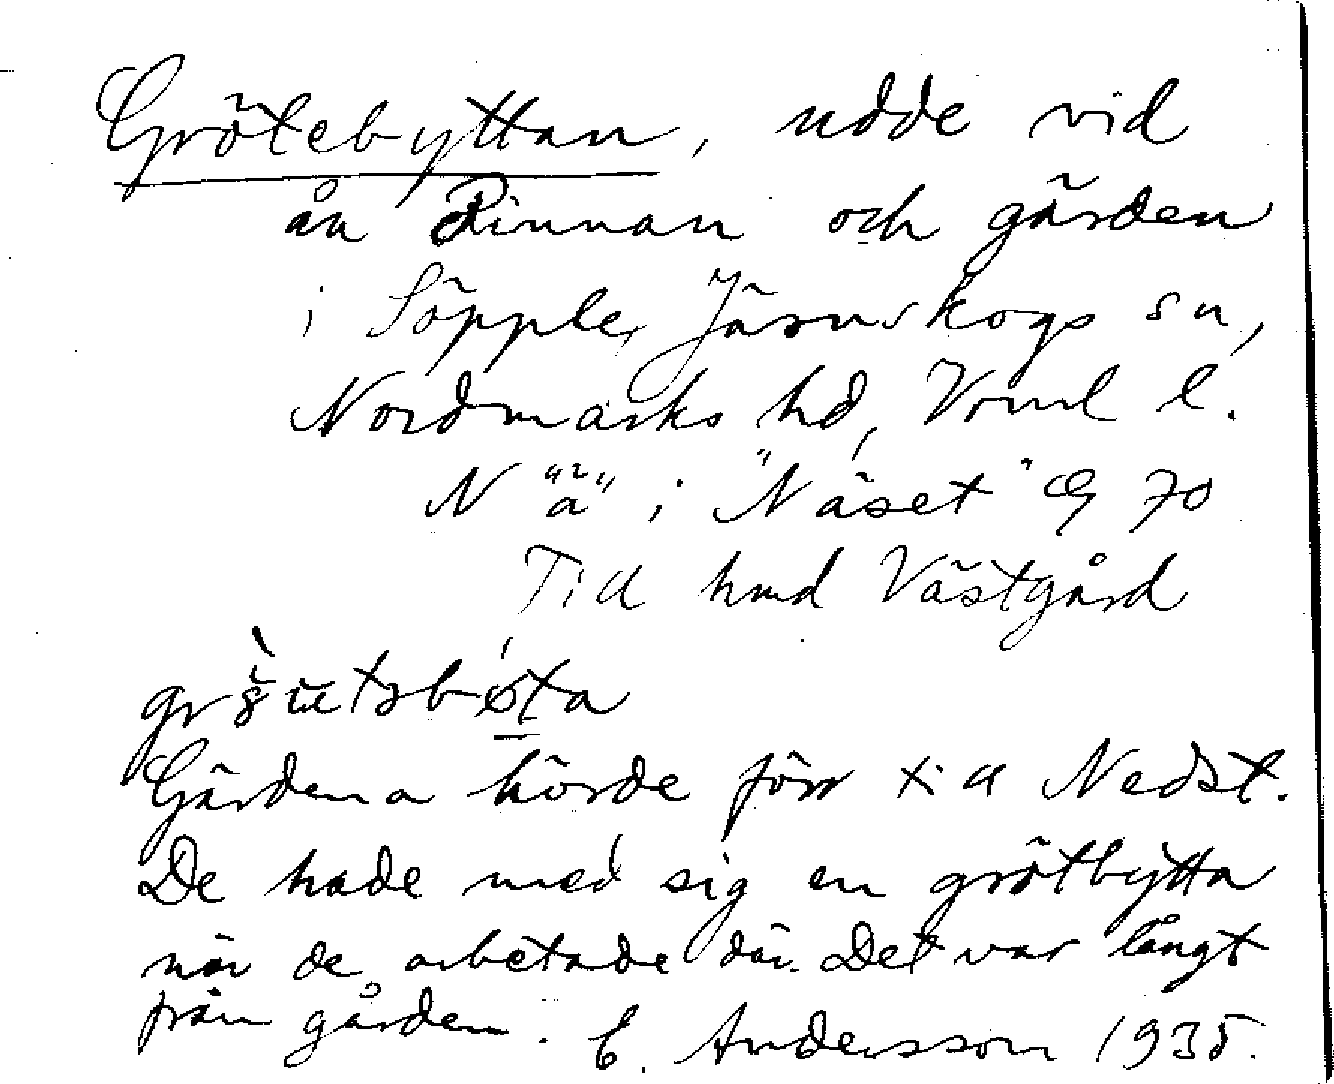 Grötebyttan, udde vid
ån Rinnan och gärden
i Söpple, Järnskogs sn,
Nordmarks hd, Vrml l.
N "ä" i "Näset" G 70
Till hmd Västgård
Gärdena hörde förr till Nedst.
De hade med sig en grötbytta
när de arbetade där. Det var långt
från gården. E. Andersson 1935.